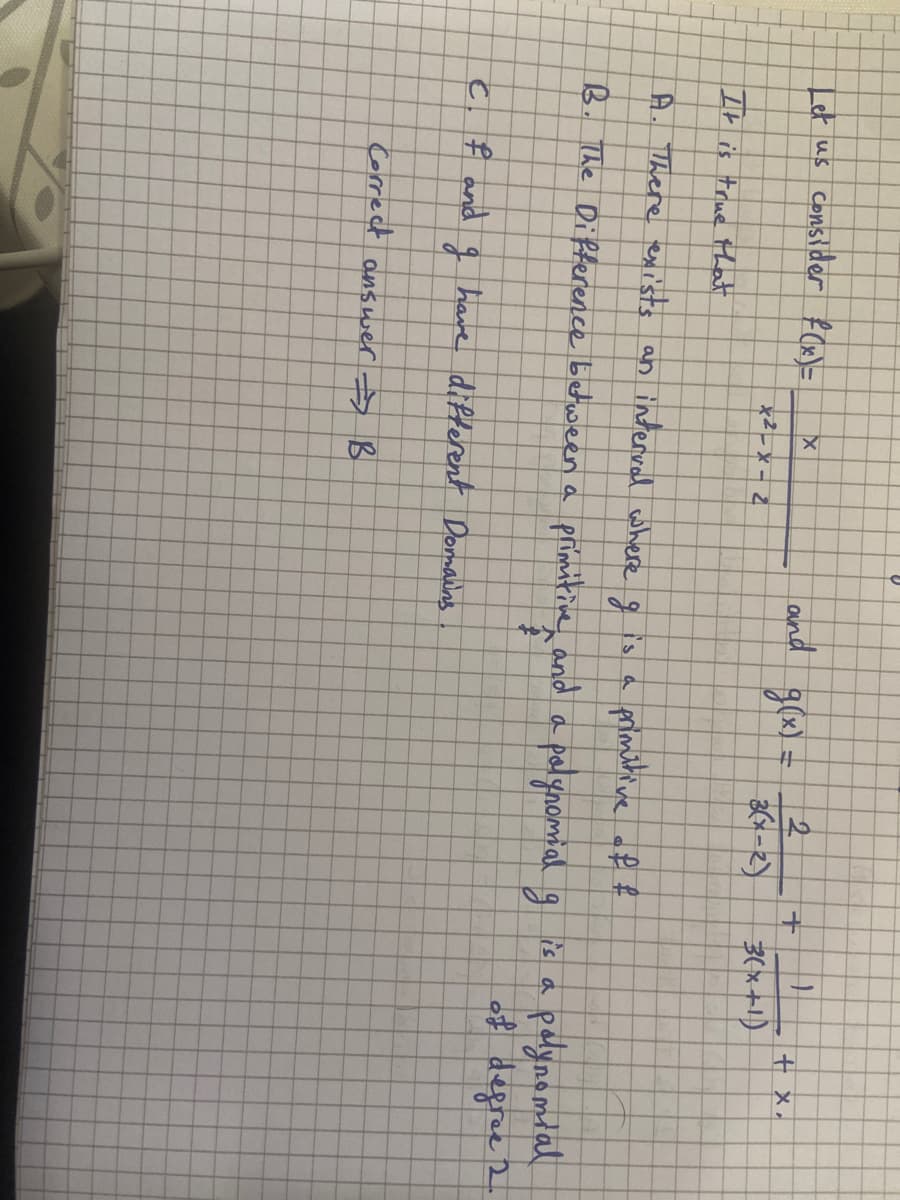 Let us consider f(x) = x / (x² - x - 2) and g(x) = 2 / 3(x-2) + 1 / 3(x+1) + x.
It is true that
A. There exists an interval where g is a primitive of f
B. The Difference between a primitive ^f and a polynomial g is a polynomial
of degree 2.
C. f and g have different Domains.
Correct answer ⇒ B